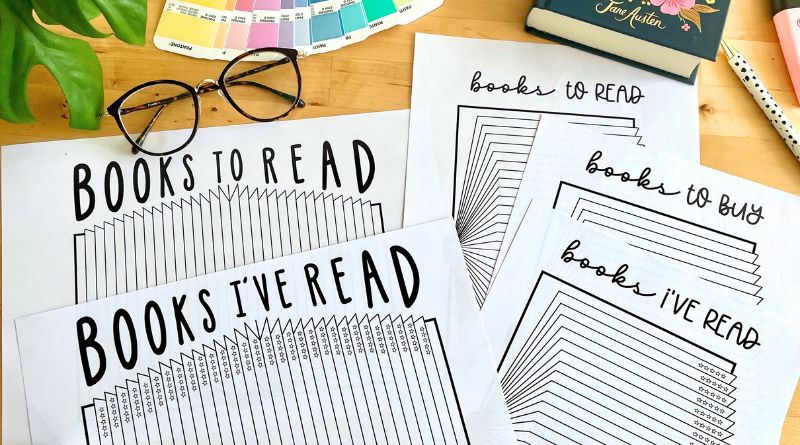 PANTONE
PANTONE
Jane Austen
books to READ
BOOKS TO READ
books to BUY
books i'VE READ
BOOKS I'VE READ